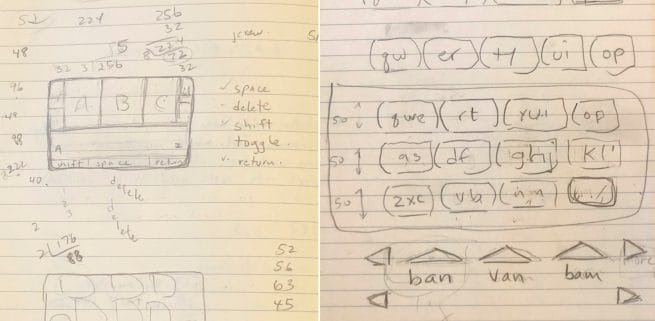 52 224 256
32
48 5 224
8 72
32 31256 32
96
48
88
A B C
A z
shift space return
space
delete
shift
toggle
return.
40.
1
2
3
delete
delete
2
2 176
88
52
56
63
45
qw er ty ui op
50 qwe rt yui op
50 as df ghj kl'
50 zxc vb nm
ban van bam more